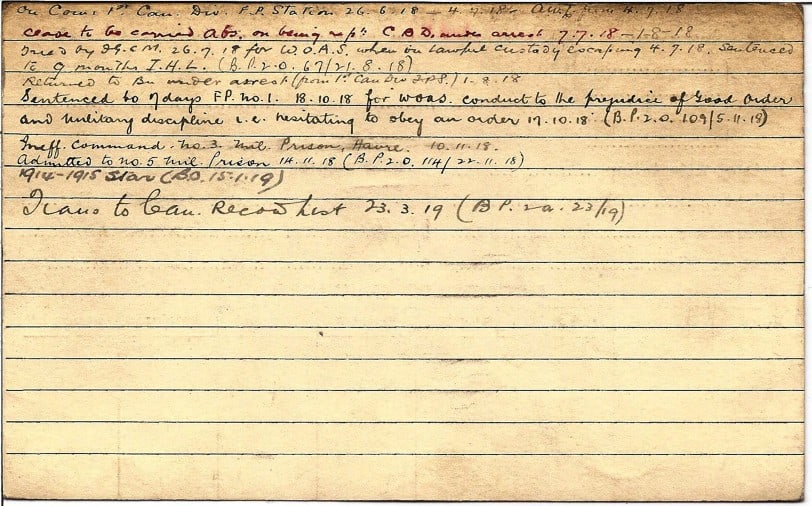 On Com: 1st Can. Div. F.P. Station 26-6-18 – 4.7.18. from 4.7.18
cease to be carried Abs. on being rep'd C.B.D. under arrest 7.7.18 – 1-8-18
Tried by F.G.C.M. 26.7.18 for W.O.A.S. when in lawful custody escaping 4.7.18. Sentenced
to 9 months I.H.L. (B.P.2.O. 67/21.8.18)
Returned to Bn under arrest (from 1st Can Div F.P.S.) 1.8.18
Sentenced to 7 days F.P. no.1. 18.10.18 for WOAS. conduct to the prejudice of Good Order
and military discipline i.e. hesitating to obey an order 17.10.18 (B.P.2.O. 109/5.11.18)
Ineff. Command. No. 3. Mil. Prison, Havre. 10.11.18.
Admitted to No. 5 Mil. Prison 14.11.18 (B.P.2.O. 114/22.11.18)
1914-1915 Star (B.O. 15.1.19)
Trans to Can. Record List 23.3.19 (B.P. 2a. 23/19)